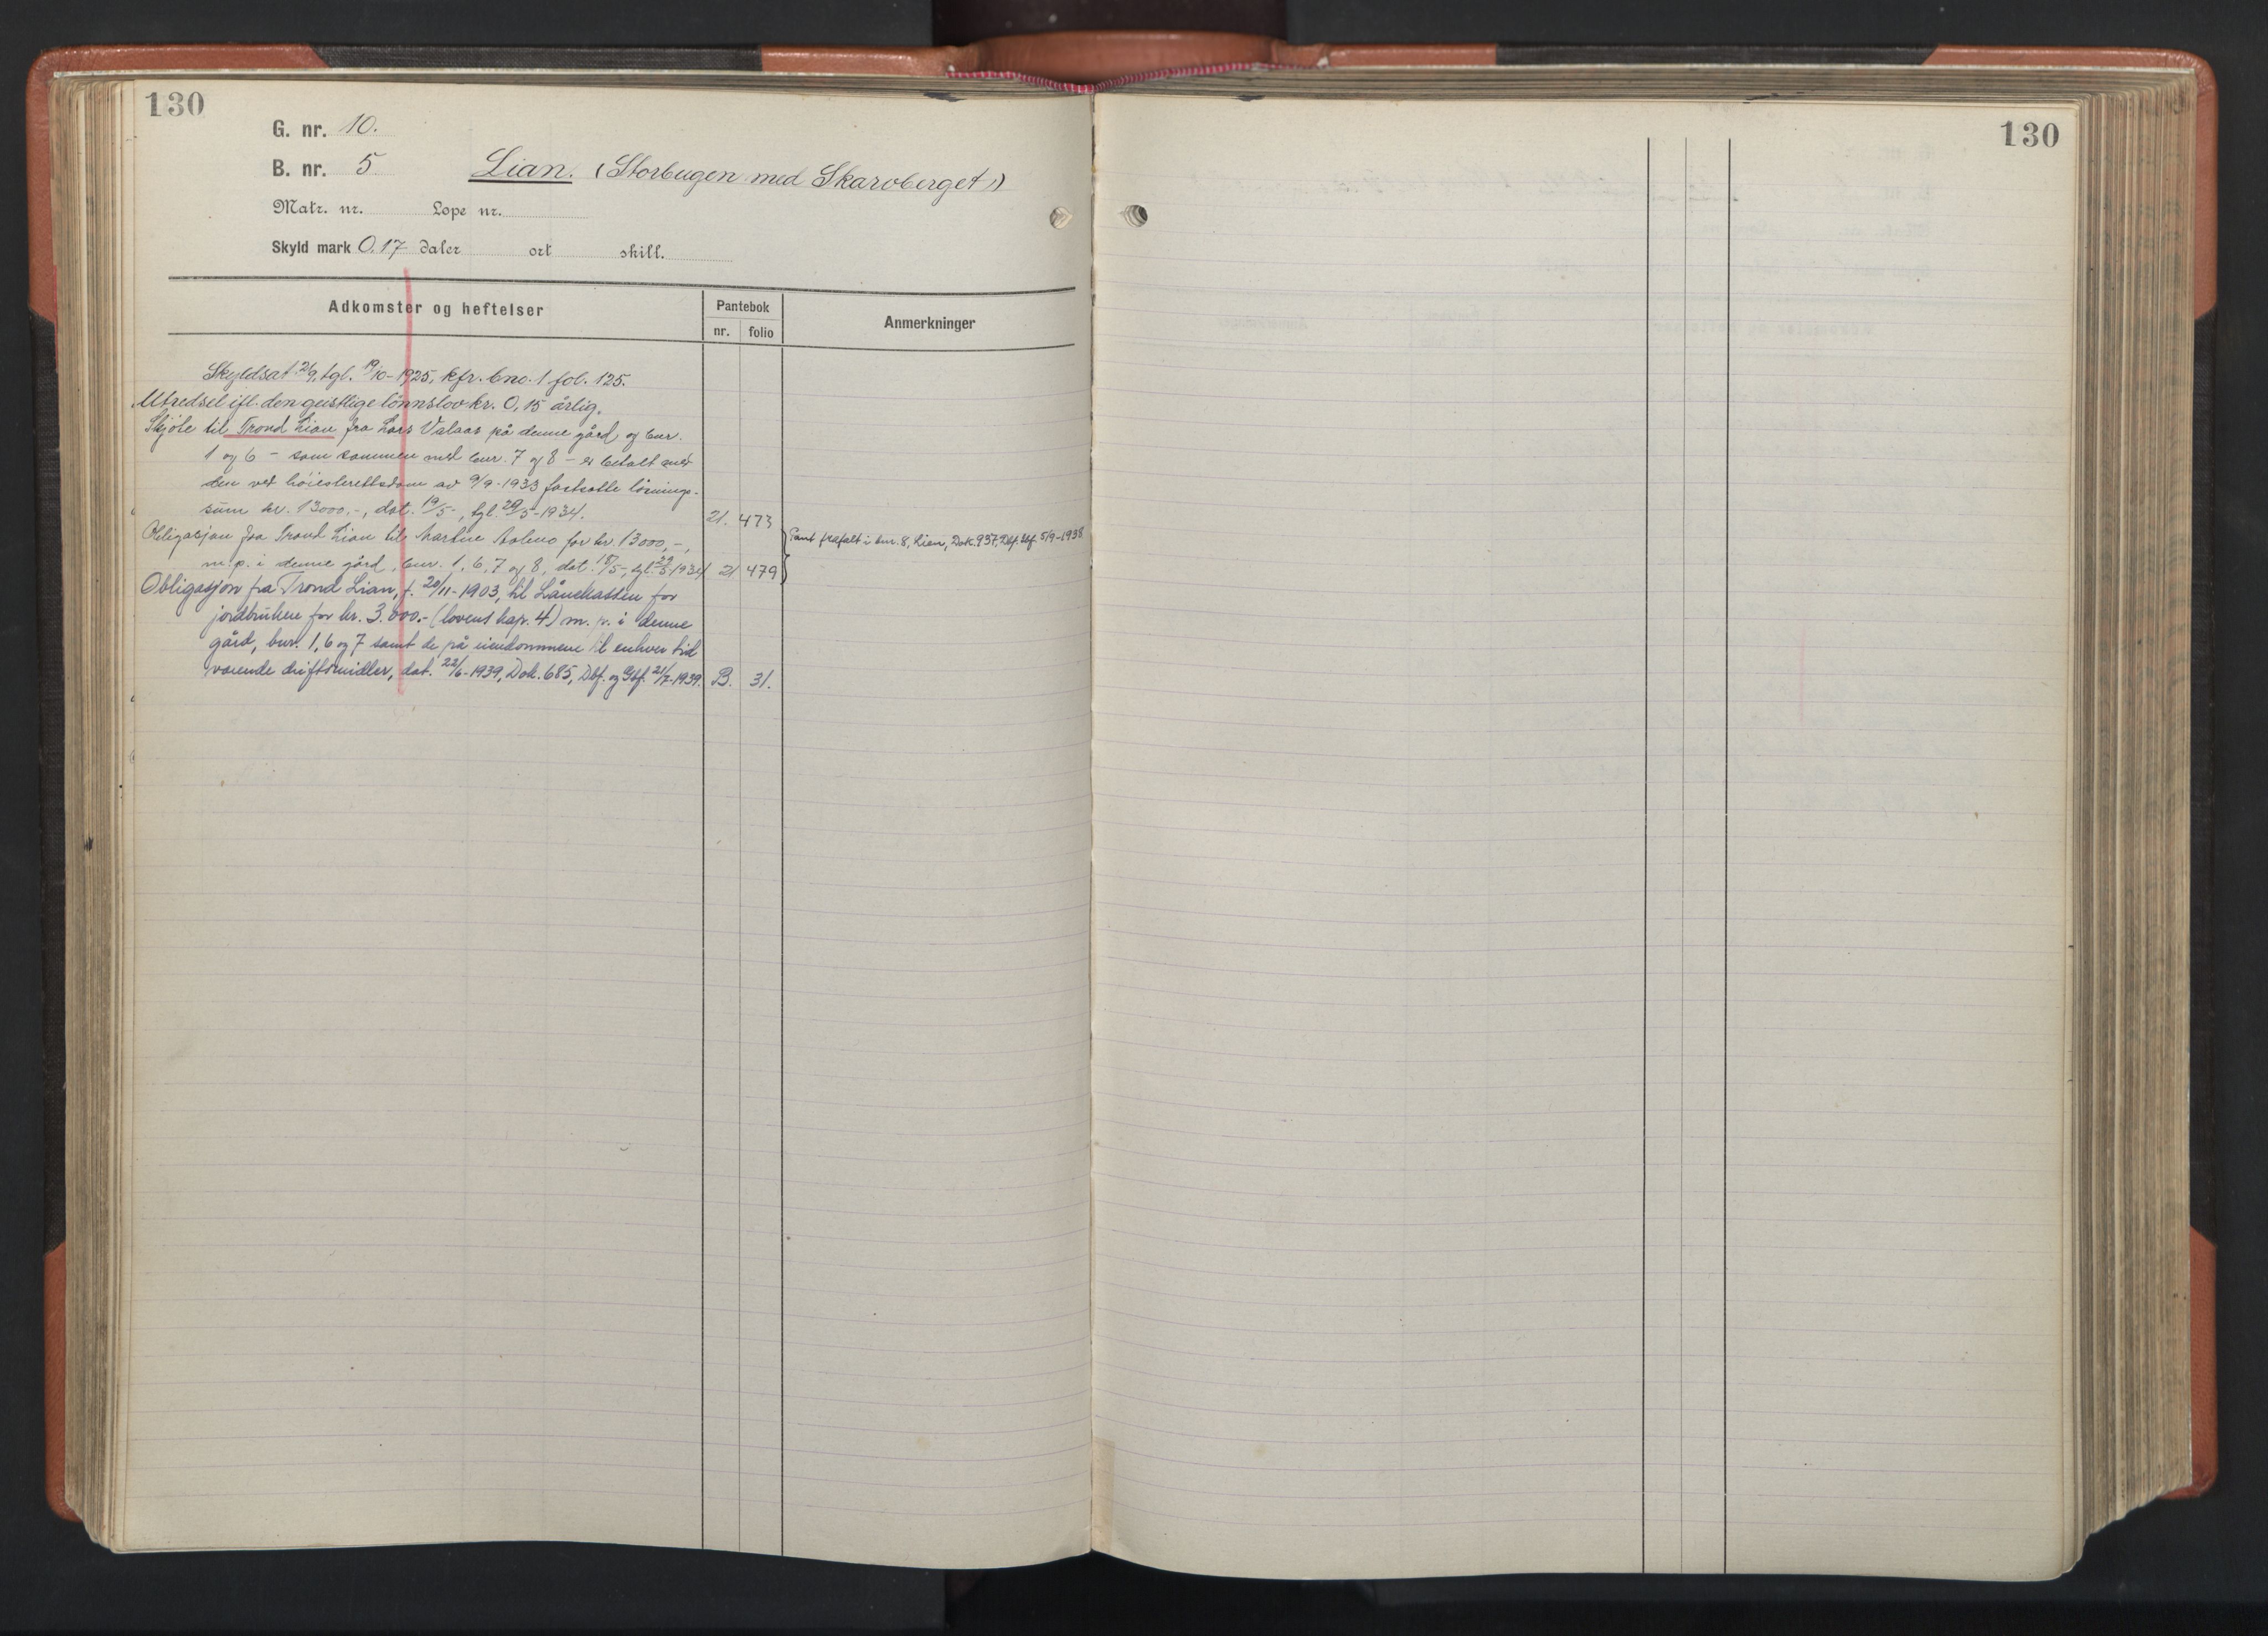 130
G. nr. 10.
B. nr. 5
Lian. (Storbugen med Skarvberget)
Matr. nr. Lope nr.
Skyld mark 0.17 daler ort skill.
Adkomster og heftelser
Pantebok
nr. folio
Anmerkninger
Skyldsat 21/9, tgl. 19/10-1925, kfr. bno. 1 fol. 125.
Utredsel ifl. den geistlige lønnslov kr. 0,15 årlig.
Skjøte til Trond Lian fra Lars Valaas på denne gård og bnr.
1 og 6 - som sammen med bnr. 7 og 8 - er betalt med
den ved høiesterettsdom av 9/9-1933 fastsatte løsnings-
sum kr. 13000,-, dat. 19/5-, tgl. 29/5-1934. 21. 473
Obligasjon fra Trond Lian til Martine for kr. 13000,-,
m. p. i denne gård, bnr. 1, 6, 7 og 8, dat. 18/5-, tgl. 29/5-1934 21 479
Pant frafalt i bnr. 8, Lien, Dok. 937, Dbf. 5/9-1938
Obligasjon fra Trond Lian, f. 20/11-1903, til Lånekassen for
jordbrukere for kr. 3.000.- (lovens kap. 4) m. p. i denne
gård, bnr. 1, 6 og 7 samt de på eiendommene til enhver tid
værende driftsmidler, dat. 22/6-1939, Dok. 685, Dbf. og Gbf. 21/7-1939. B. 31.
130